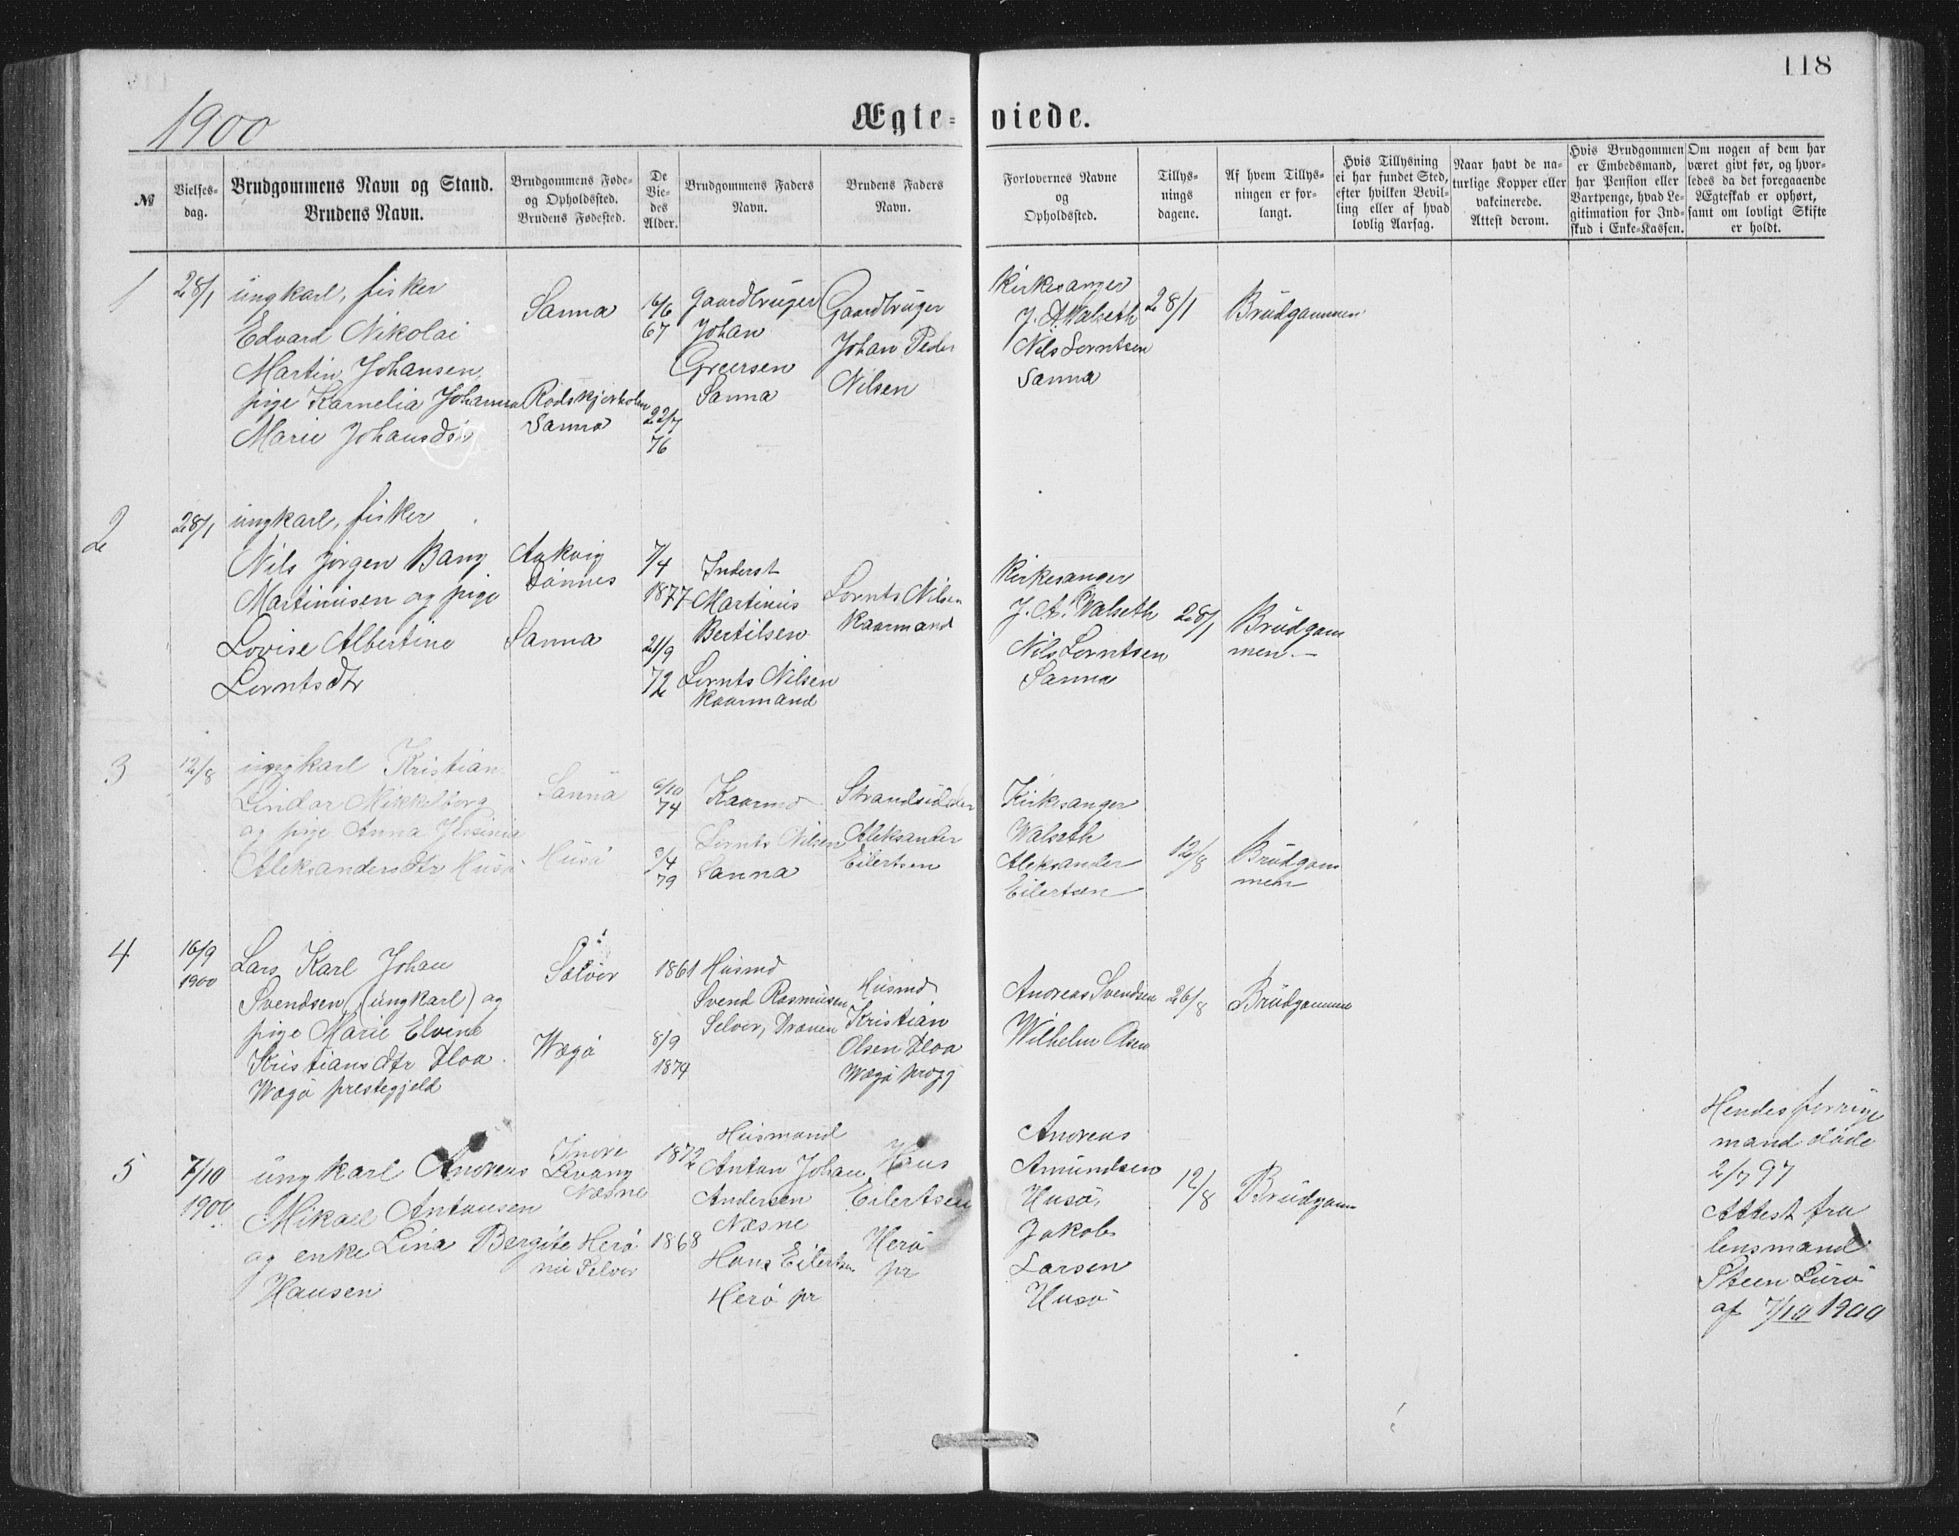 118
1900
Ægteviede.
№
Vielses-
dag.
Brudgommens Navn og Stand.
Brudens Navn.
Brudgommens Føde-
og Opholdssted.
Brudens Fødested.
De
Vie-
des
Alder.
Brudgommens Faders
Navn.
Brudens Faders
Navn.
Forlovernes Navne
og
Opholdssted.
Tillys-
nings
dagene.
Af hvem Tillys-
ningen er for-
langt.
Hvis Tillysning
ei har fundet Sted,
efter hvilken Bevil-
ling eller af hvad
lovlig Aarsag.
Naar havt de na-
turlige Kopper eller
vakcinerede.
Attest derom.
Hvis Brudgommen
er Embedsmand,
har Pension eller
Vartpenge, hvad Le-
gitimation for Ind-
skud i Enke-Kassen.
Om nogen af dem har
været givt før, og hvor-
ledes da det foregaaende
Ægteskab er ophørt,
samt om lovligt Skifte
er holdt.
1
28/1
ungkarl, fisker
Edvard Nikolai
Martin Johansen
pige Karnelia Johanna
Marie Johansdtr
Sanna
Rødskjærholm
Sanna
16/6
67
22/7
76
Gaardbruger
Johan
Greersen
Sanna
Gaardbruger
Johan Peder
Nilsen
Kirkesanger
J. A. Walseth
Nils Lorntsen
Sanna
28/1
Brudgommen
2
28/1
ungkarl, fisker
Nils Jørgen Bang
Martinusen og pige
Lovise Albertine
Lorntsdtr
Aakvig
Dønnes
Sanna
7/4
1877
21/9
72
Inderst
Martinus
Bertilsen
Lornts Nilsen
Kaarmand
Lornts Nilsen
Kaarmand
Kirkesanger
J. A. Walseth
Nils Lorntsen
Sanna
28/1
Brudgom
men.
3
12/8
ungkarl Kristian
Lindar Mikkelborg
og pige Anna
Aleksandersdtr Husø
Sanna
Husø
6/10
74
9/4
79
Kaarmd
Lornts Nilsen
Sanna
Strandsidder
Aleksander
Eilertsen
Kirkesanger
Walseth
Aleksander
Eilertsen
12/8
Brudgom
men
4
16/9
1900
Lars Karl Johan
Svendsen, (ungkarl) og
pige Marie Elvine
Kristiansdtr Floa.
Wægø prestegjeld
Selvær
Wægø
1861
8/9
1874
Husmd
Svend Rasmusen
Selvær, Trænen
Husmd
Kristian
Olsen Floa
Wægø prgj
Andreas Svendsen
Wilhelm Olsen
26/8
Brudgommen
5
7/10
1900
ungkarl Andreas
Mikael Antonsen
og enke Lina Bergite
Hansen
Levang
Næsne
Herø
nu Selvær
1872
1868
Husmand
Anton Johan
Andersen
Næsne
Hans Eilertsen
Herø pr
Hans
Eilertsen
Herø
pr
Andreas
Amundsen
Husø,
Jakob
Larsen
Husø
12/8
Brudgom
Hendes forrige
mand døde
2/7 97
Attest fra
lensmand
Steen Lurø
af 7/10 1900